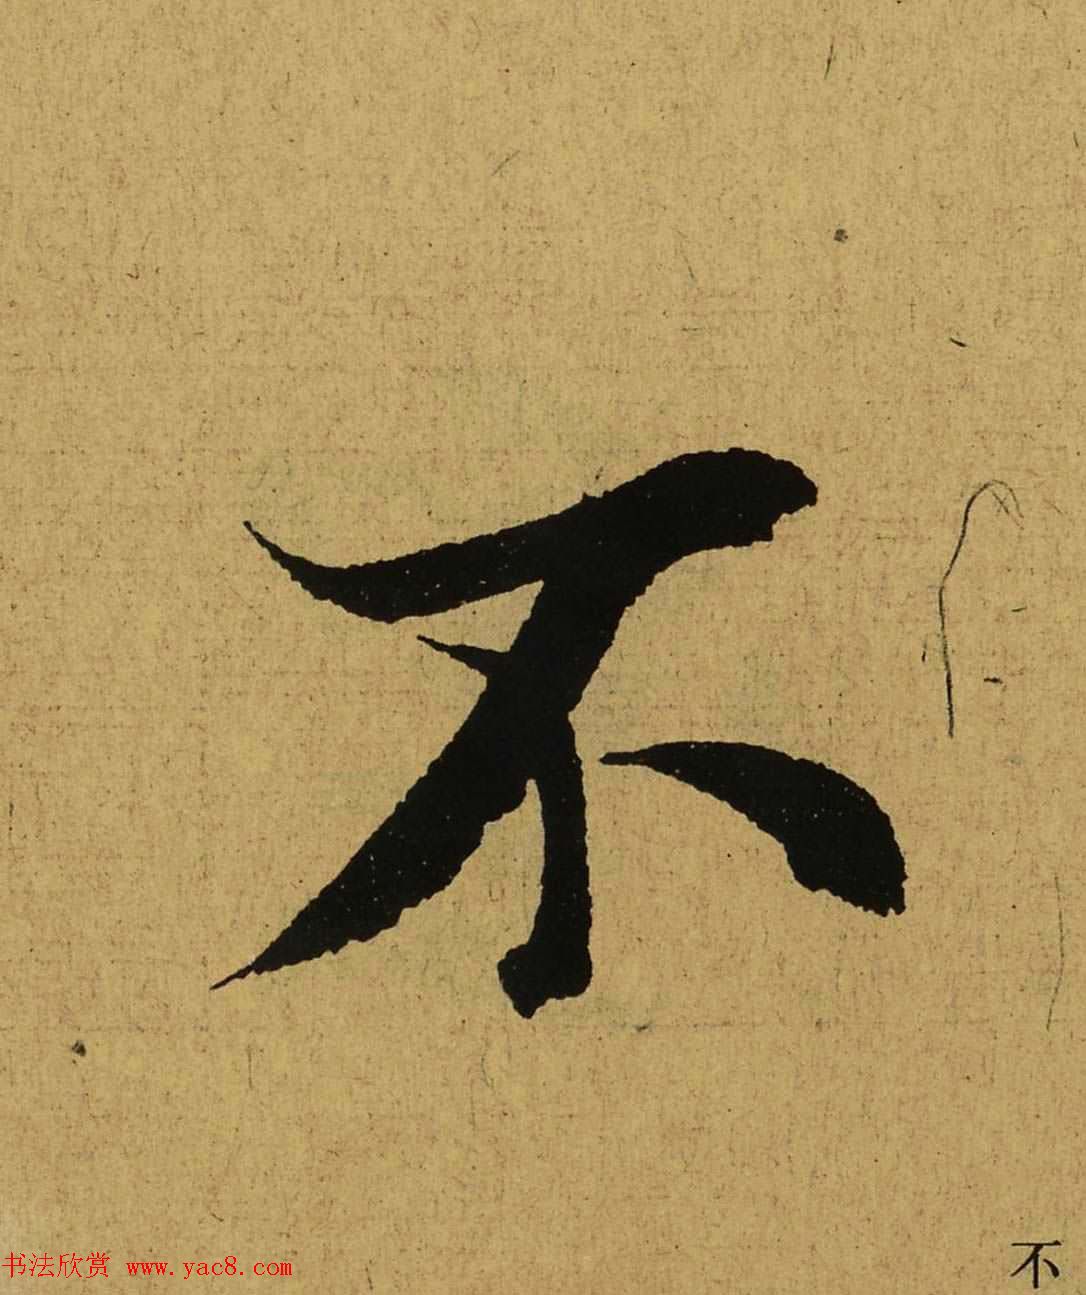 不
书法欣赏 www.yac8.com
不